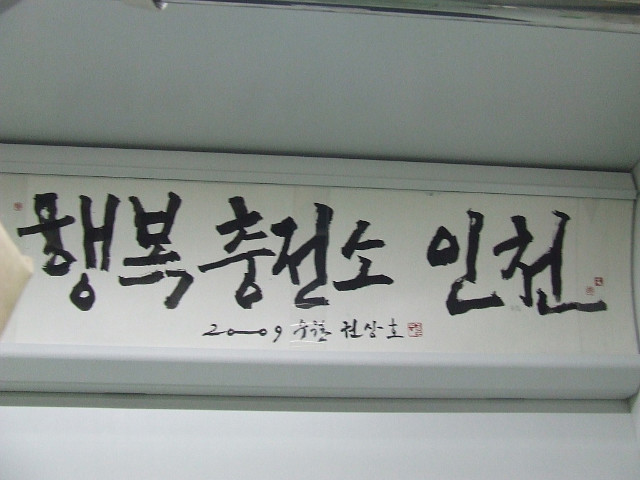 행복충전소 인천
2009 권상호